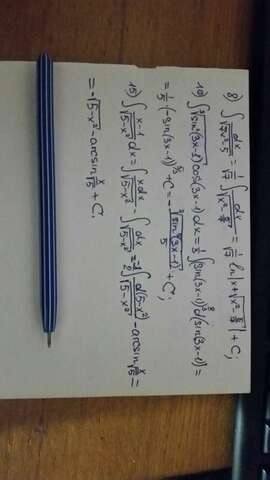 8) ∫ dx/√(7x²-5) = 1/√7 ∫ dx/√(x²-5/7) = 1/√7 ln|x+√(x²-5/7)| + C;
10) ∫ ∛(sin²(3x-1)) cos(3x-1)dx = 1/3 ∫(sin(3x-1))^(2/3) d(sin(3x-1)) =
= 1/5 · (-sin(3x-1))^(5/3) + C = - ∛(sin⁵(3x-1))/5 + C;
15) ∫ (x-1)/√(5-x²) dx = ∫ xdx/√(5-x²) - ∫ dx/√(5-x²) = -1/2 ∫ d(5-x²)/√(5-x²) - arcsin x/√5 =
= -√(5-x²) - arcsin x/√5 + C.